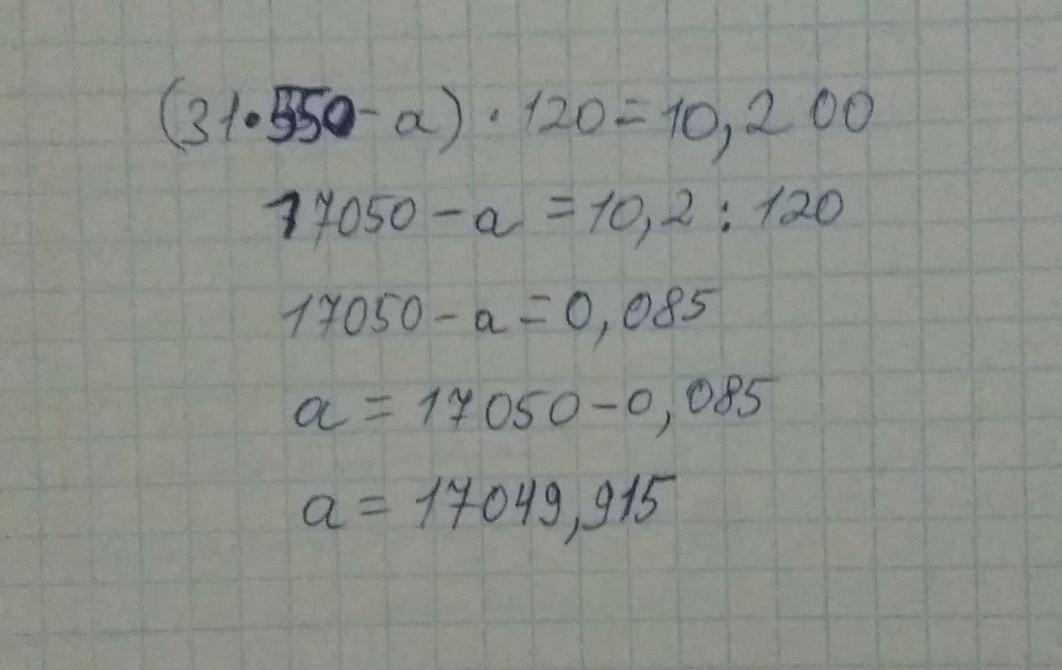 (31•550-a)·120=10,200
17050-a=10,2:120
17050-a=0,085
a=17050-0,085
a=17049,915